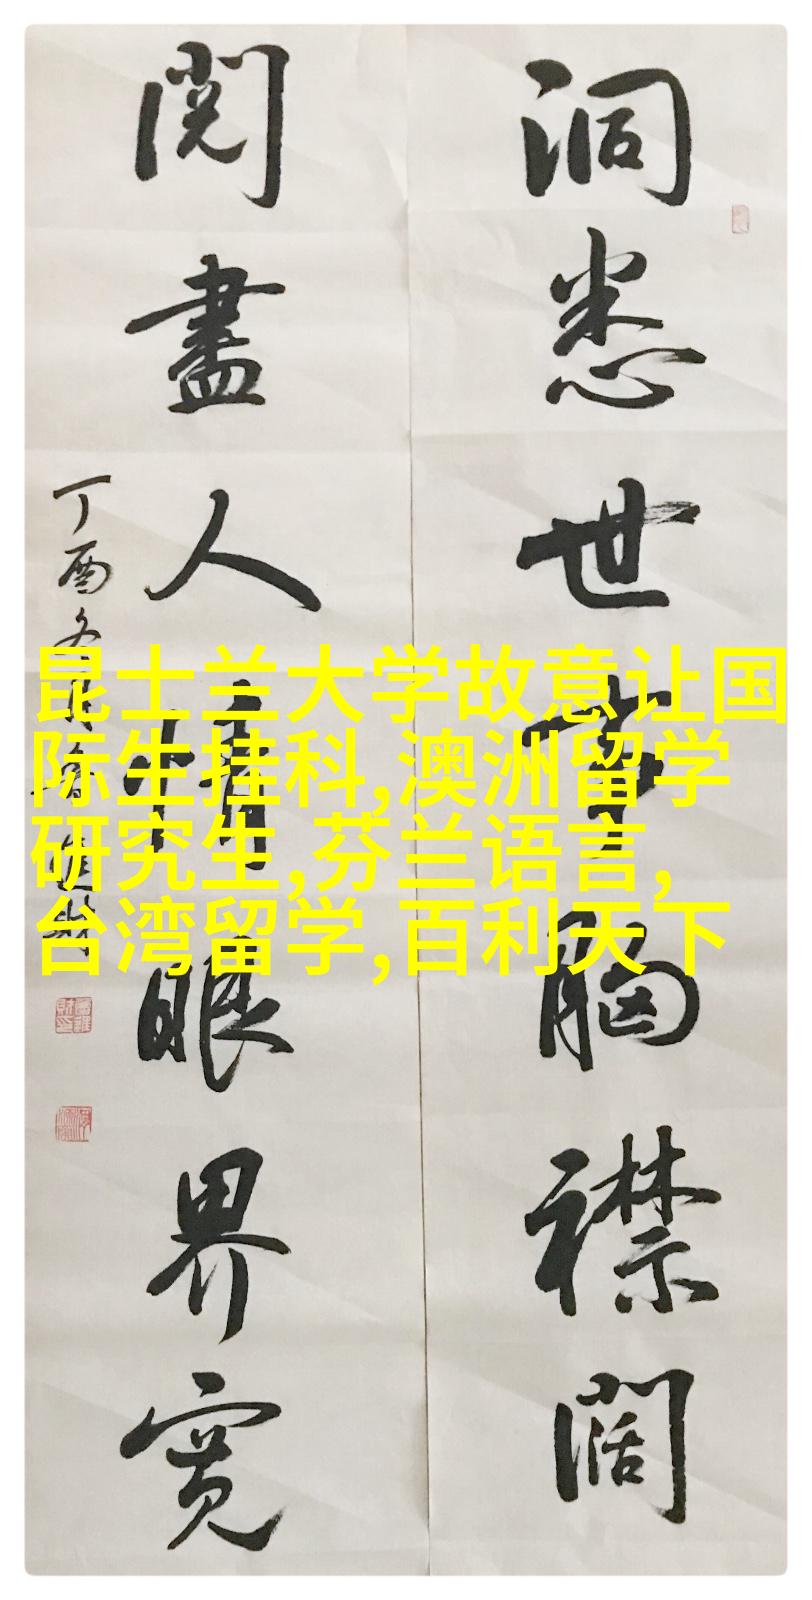 洞悉世事胸襟阔
阅盡人情眼界寬
丁酉冬月
昆士兰大学故意让国
际生挂科,澳洲留学
研究生,芬兰语言,
台湾留学,百利天下